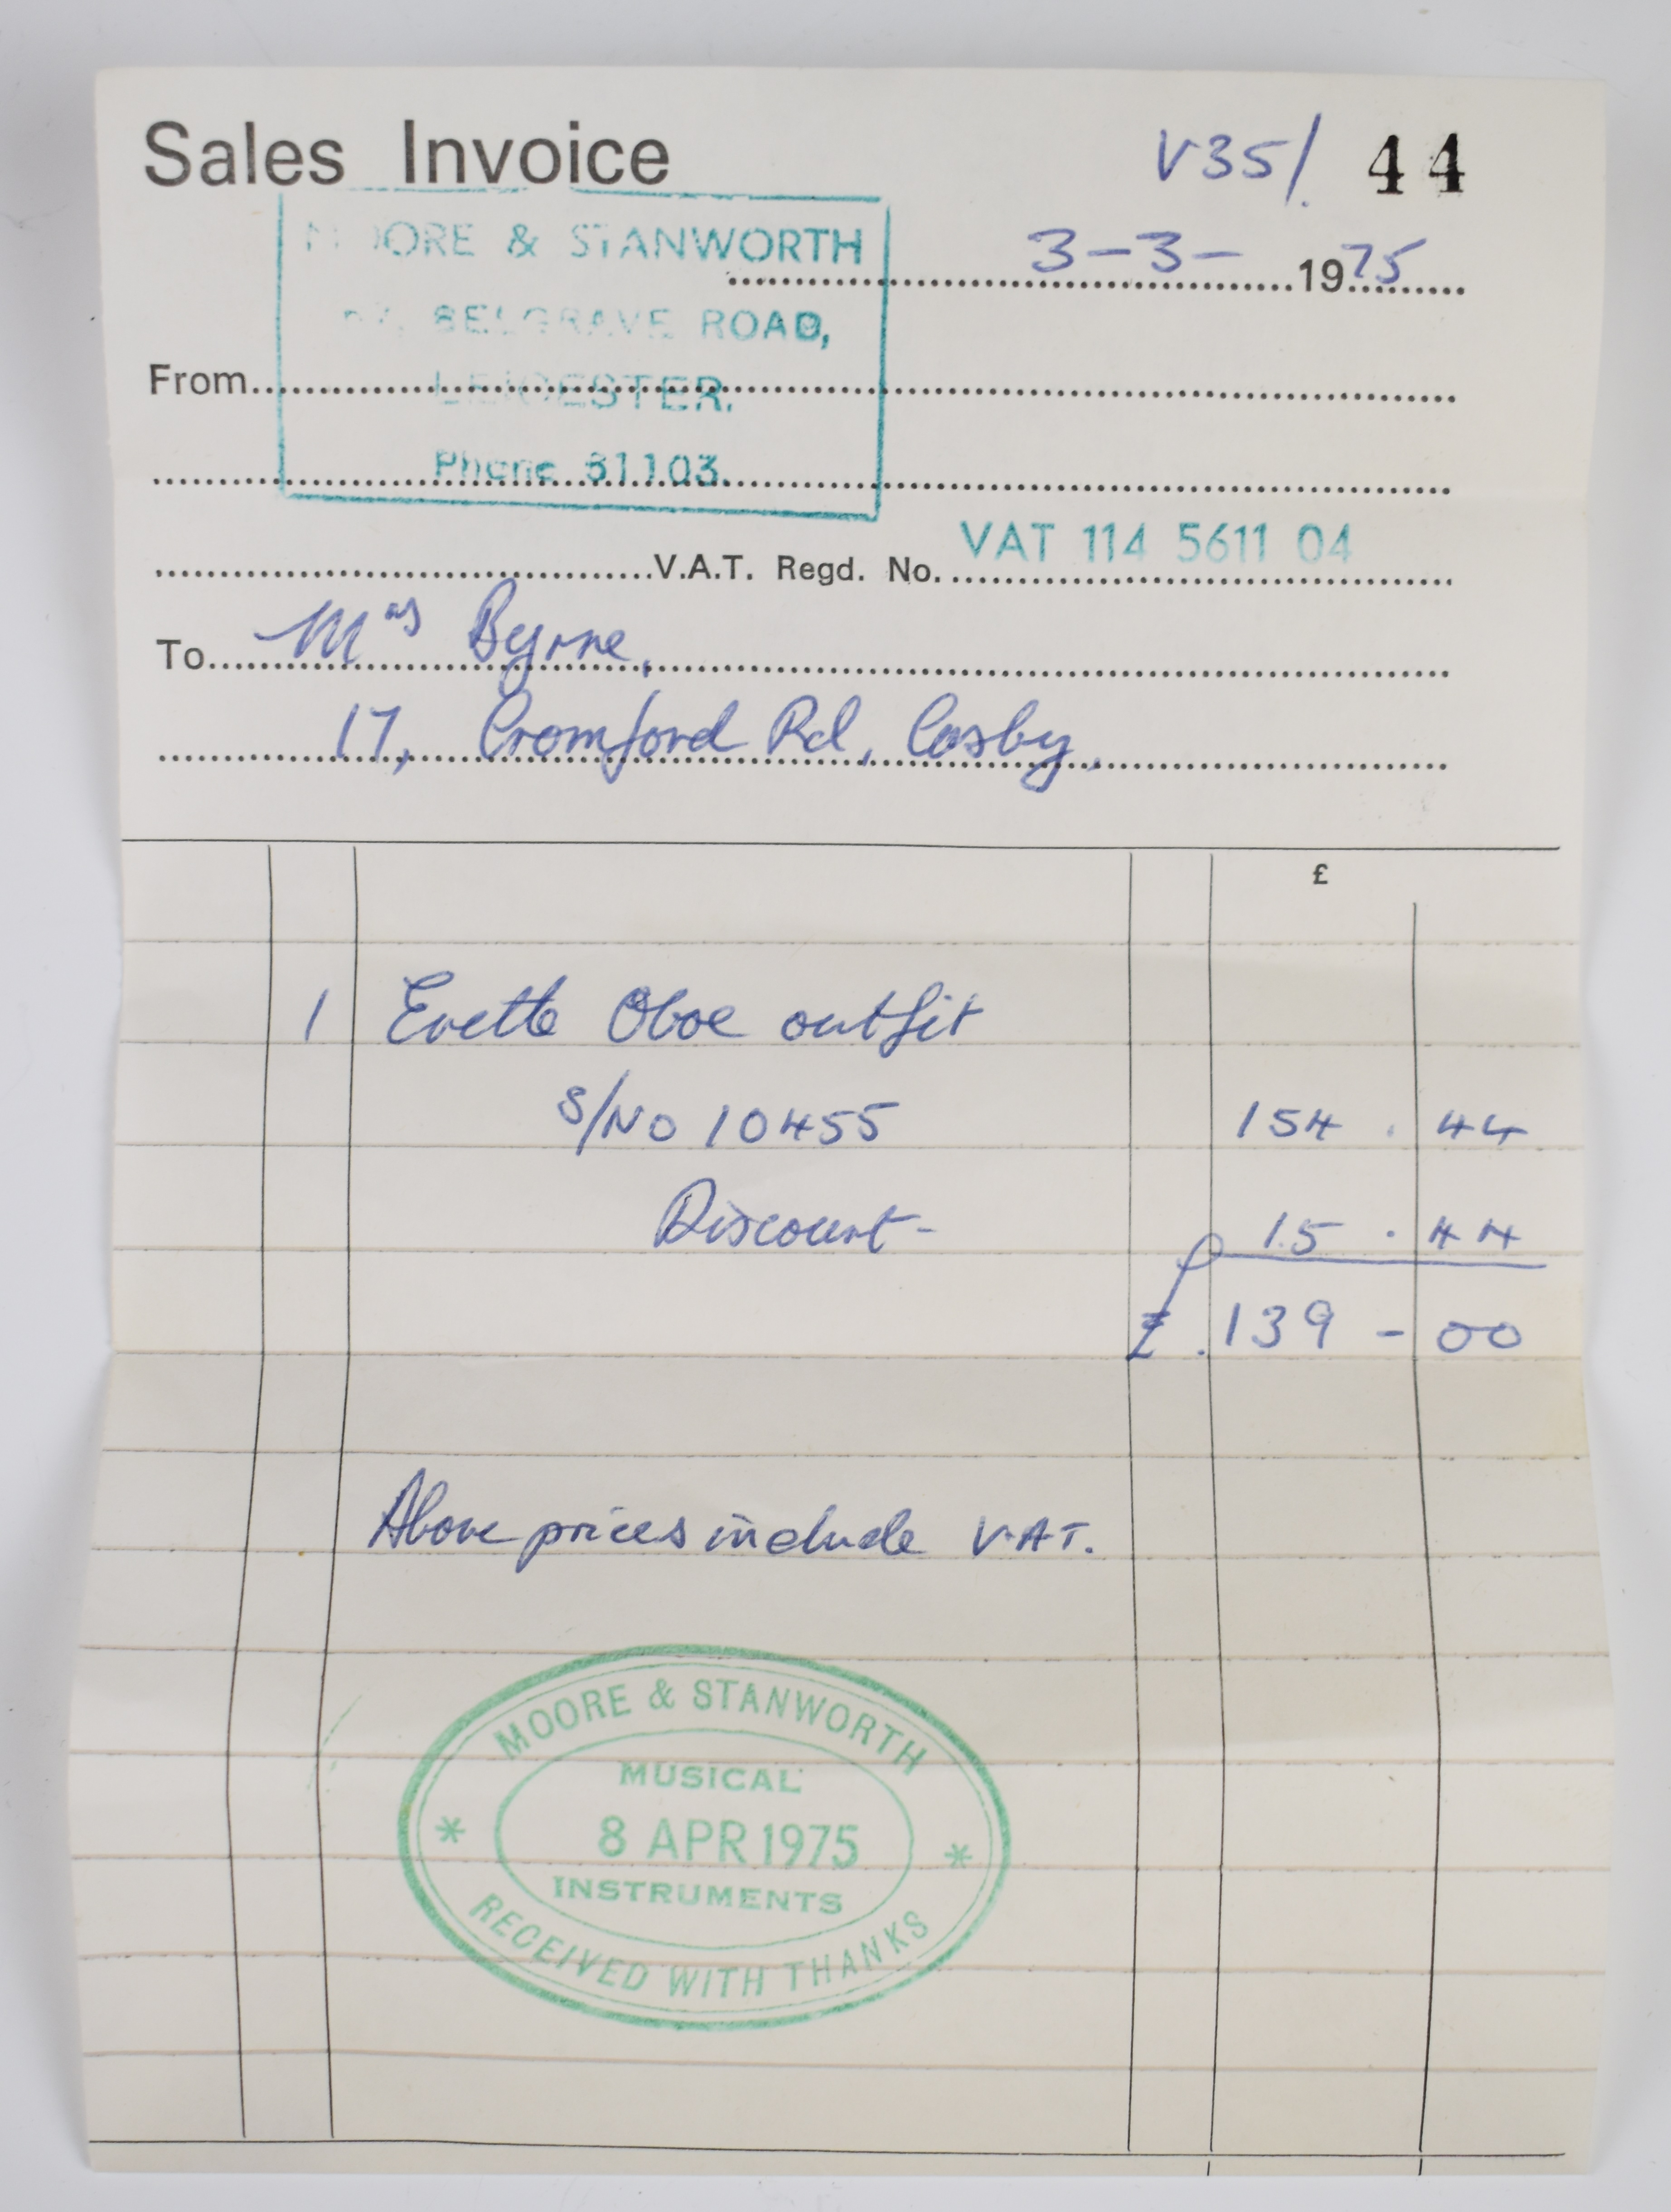 Sales Invoice
V35/. 44
MOORE & STANWORTH
3-3- 1975
BELGRAVE ROAD,
From
LEICESTER.
Phone 51103
V.A.T. Regd. No. VAT 114 5611 04
To Mrs Byrne,
17, Cromford Rd, Cosby,
£
1 Evette Oboe outfit
S/No 10455 154 . 44
Discount - 15 . 44
£ . 139 - 00
Above prices include V.A.T.
MOORE & STANWORTH
MUSICAL
* 8 APR 1975 *
INSTRUMENTS
RECEIVED WITH THANKS